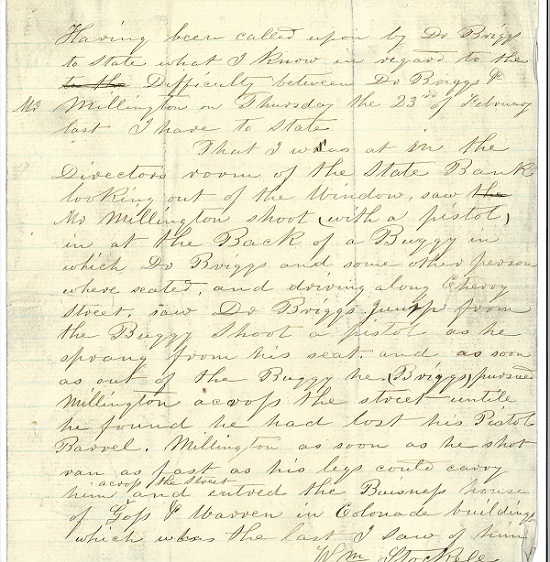 Having been called upon by Dr Briggs
to state what I know in regard to the
to the Difficulty between Dr Briggs &
Mr Millington on Thursday the 23rd of February
last I have to state
That I was at in the
Directors room of the State Bank
looking out of the Window, saw the
Mr Millington shoot (with a pistol)
in at the Back of a Buggy in
which Dr Briggs and some other person
where seated, and driving along Cherry
Street, saw Dr Briggs jump from
the Buggy Shoot a pistol as he
sprang from his seat and, as soon
as out of the Buggy he (Briggs) pursued
Millington across the street untile
he found he had lost his Pistol
Barrel. Millington as soon as he shot
ran as fast as his legs could carry
across the Street
him and entred the Buisness house
of Goss & Warren in Colonade building
which was the last I saw of him
Wm Stockele